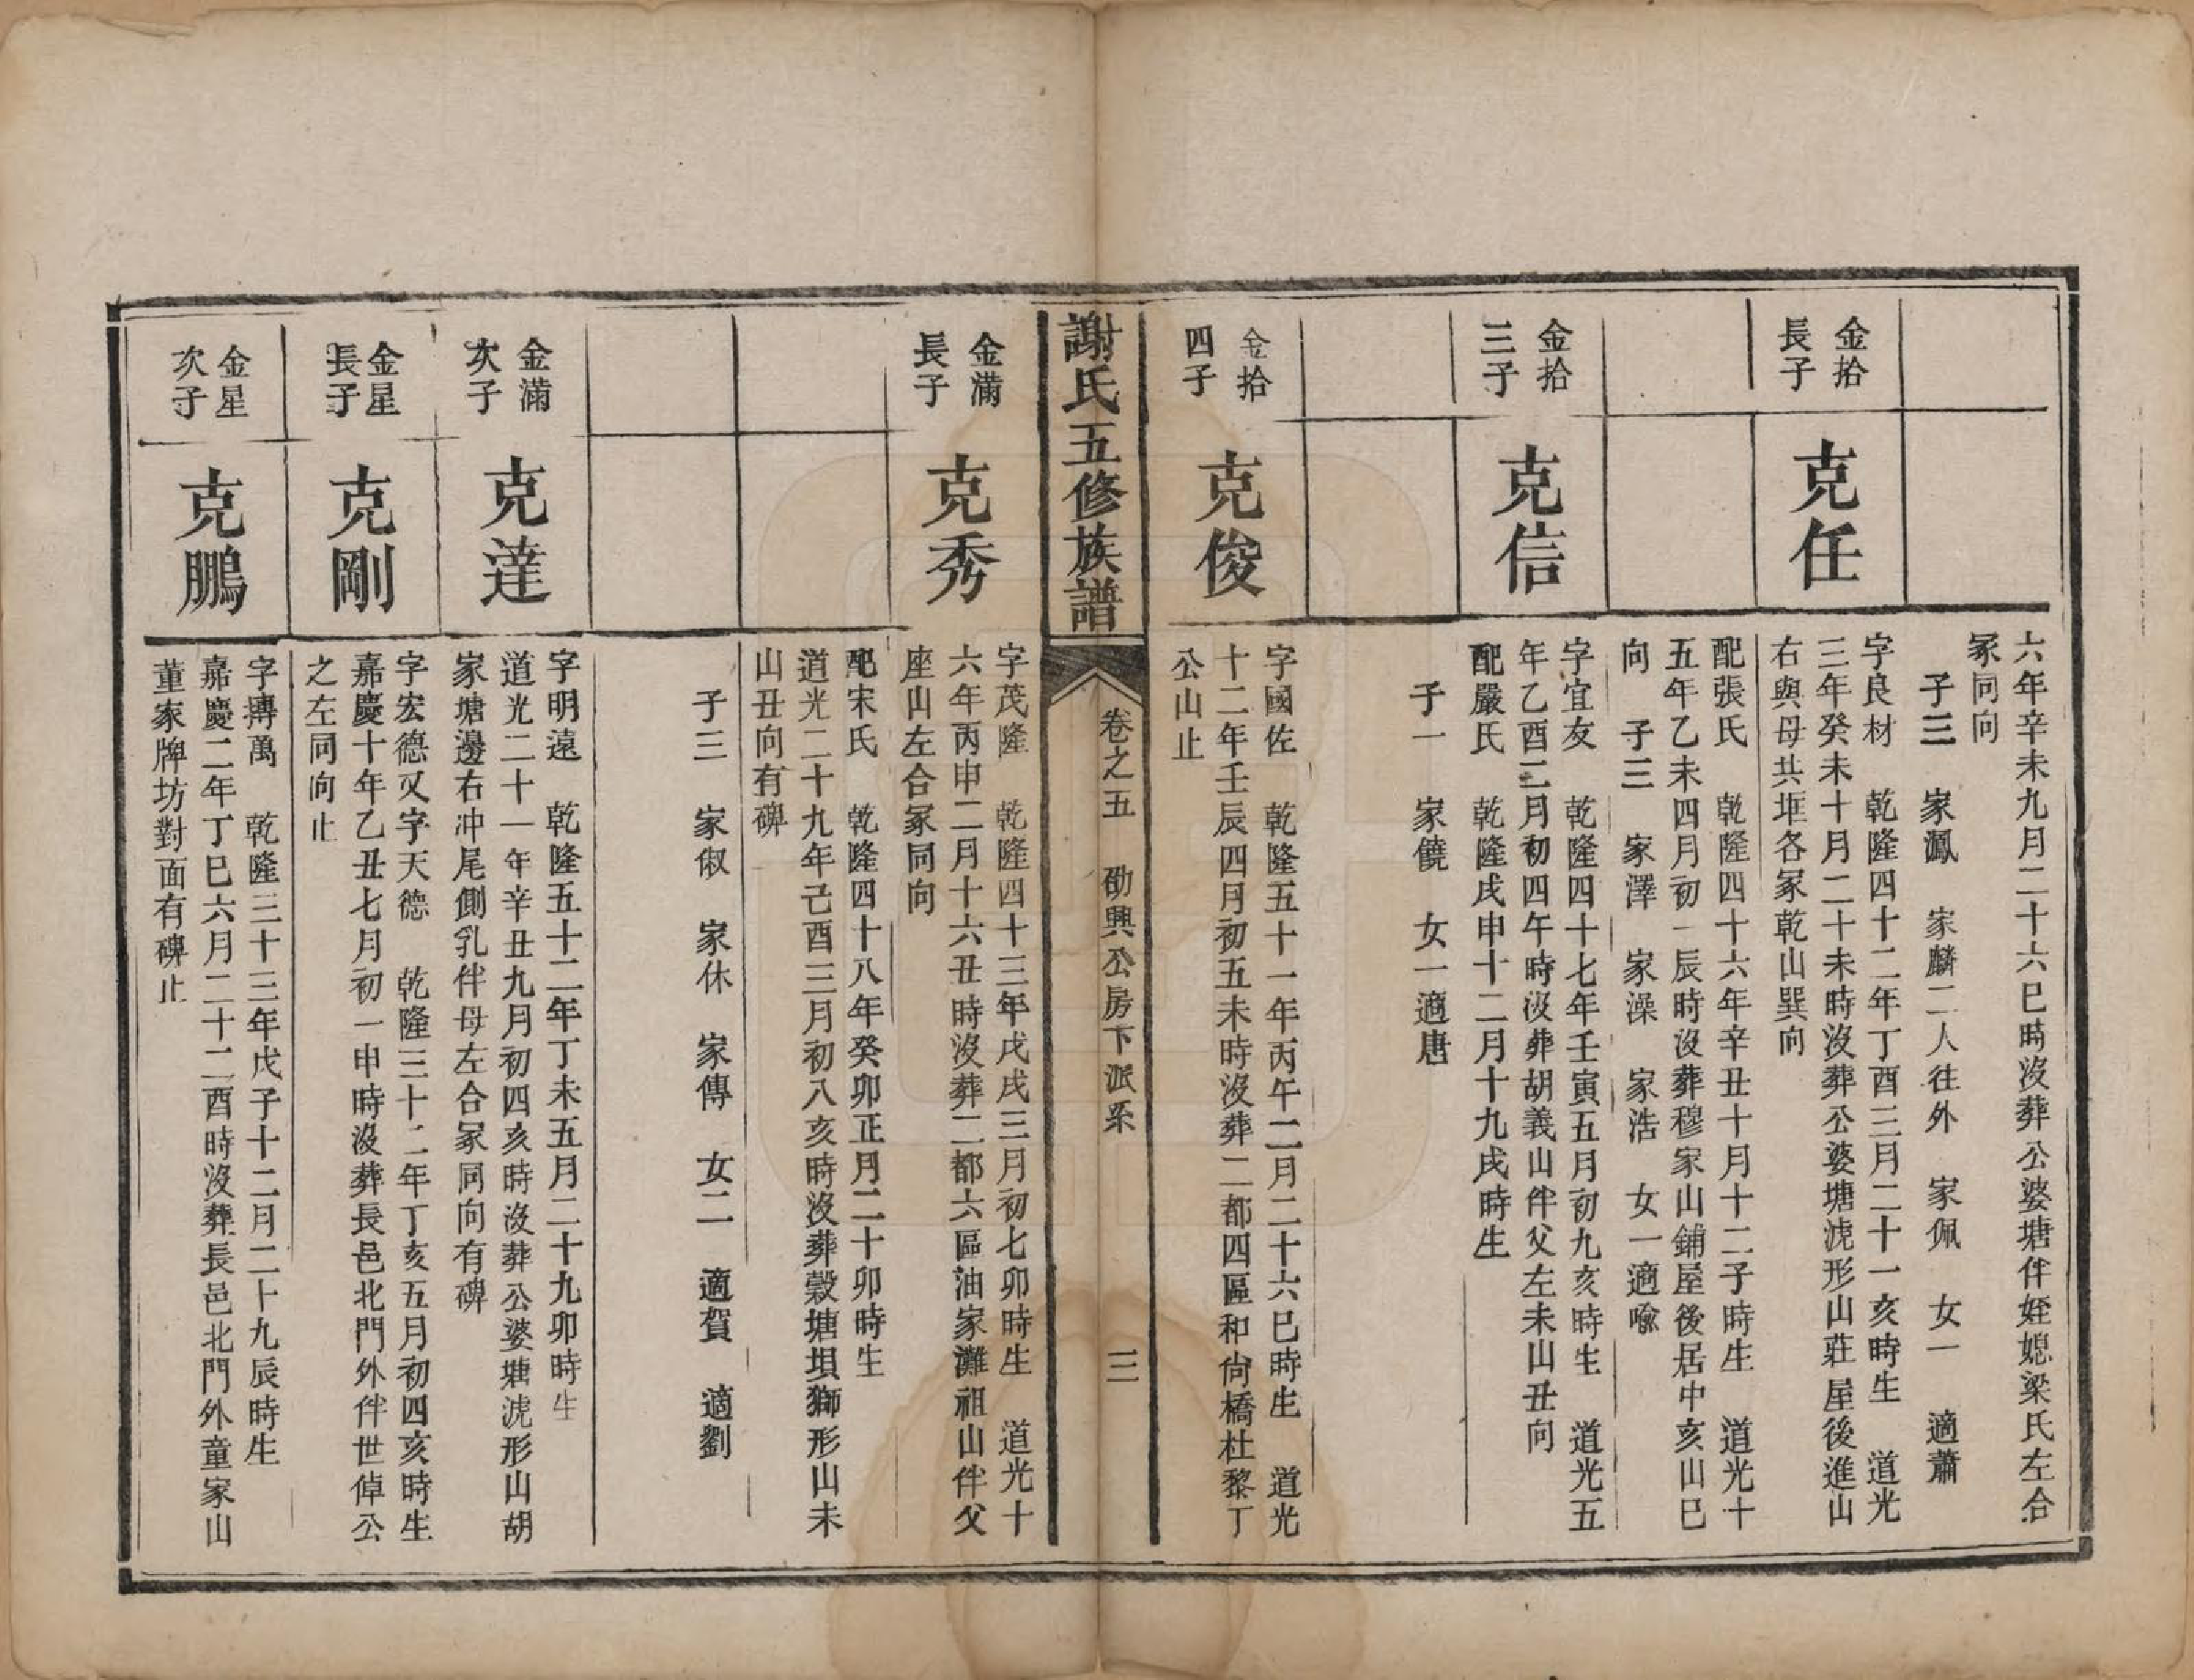 六年辛未九月二十六巳時沒葬公婆塘伴姪媳梁氏左合
冢同向
子三 家鳳 家麟二人往外 家佩 女一 適蕭
金拾
長子
克任
字良材 乾隆四十二年丁酉三月二十一亥時生 道光
三年癸未十月二十未時沒葬公婆塘虎形山莊屋後進山
右與母共堆各冢乾山巽向
配張氏 乾隆四十六年辛丑十月十二子時生 道光十
五年乙未四月初一辰時沒葬穆家山鋪屋後居中亥山巳
向 子三 家澤 家澡 家浩 女一適喻
金拾
三子
克信
字宜友 乾隆四十七年壬寅五月初九亥時生 道光五
年乙酉二月初四午時沒葬胡義山伴父左未山丑向
配嚴氏 乾隆戊申十二月十九戌時生
子一 家饒 女一適唐
金拾
四子
克俊
字國佐 乾隆五十一年丙午二月二十六巳時生 道光
十二年壬辰四月初五未時沒葬二都四區和尙橋杜黎丁
公山止
謝氏五修族譜
卷之五 劭興公房下派系 三
金滿
長子
克秀
字茂隆 乾隆四十三年戊戌三月初七卯時生 道光十
六年丙申二月十六丑時沒葬二都六區油家灘祖山伴父
座山左合冢同向
配宋氏 乾隆四十八年癸卯正月二十卯時生
道光二十九年己酉三月初八亥時沒葬穀塘垻獅形山未
山丑向有碑
子三 家俶 家休 家傳 女二 適賀 適劉
金滿
次子
克達
字明遠 乾隆五十二年丁未五月二十九卯時生
道光二十一年辛丑九月初四亥時沒葬公婆塘虎形山胡
家塘邊右冲尾側乳伴母左合冢同向有碑
金星
長子
克剛
字宏德又字天德 乾隆三十二年丁亥五月初四亥時生
嘉慶十年乙丑七月初一申時沒葬長邑北門外伴世倬公
之左同向止
金星
次子
克鵬
字摶萬 乾隆三十三年戊子十二月二十九辰時生
嘉慶二年丁巳六月二十二酉時沒葬長邑北門外童家山
董家牌坊對面有碑止